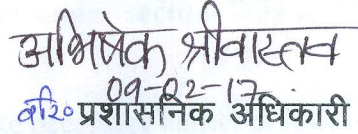 अभिषेक श्रीवास्तव
09-02-17
वरि० प्रशासनिक अधिकारी